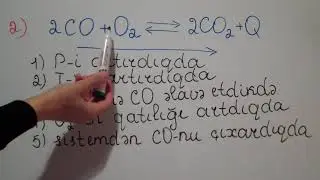 2) 2CO + O₂ ⇌ 2CO₂ + Q
1) P-i artırdıqda
2) T- artırdıqda
CO əlavə etdikdə
qatılığı artdıqda
5) sistemdən CO-nu çıxardıqda